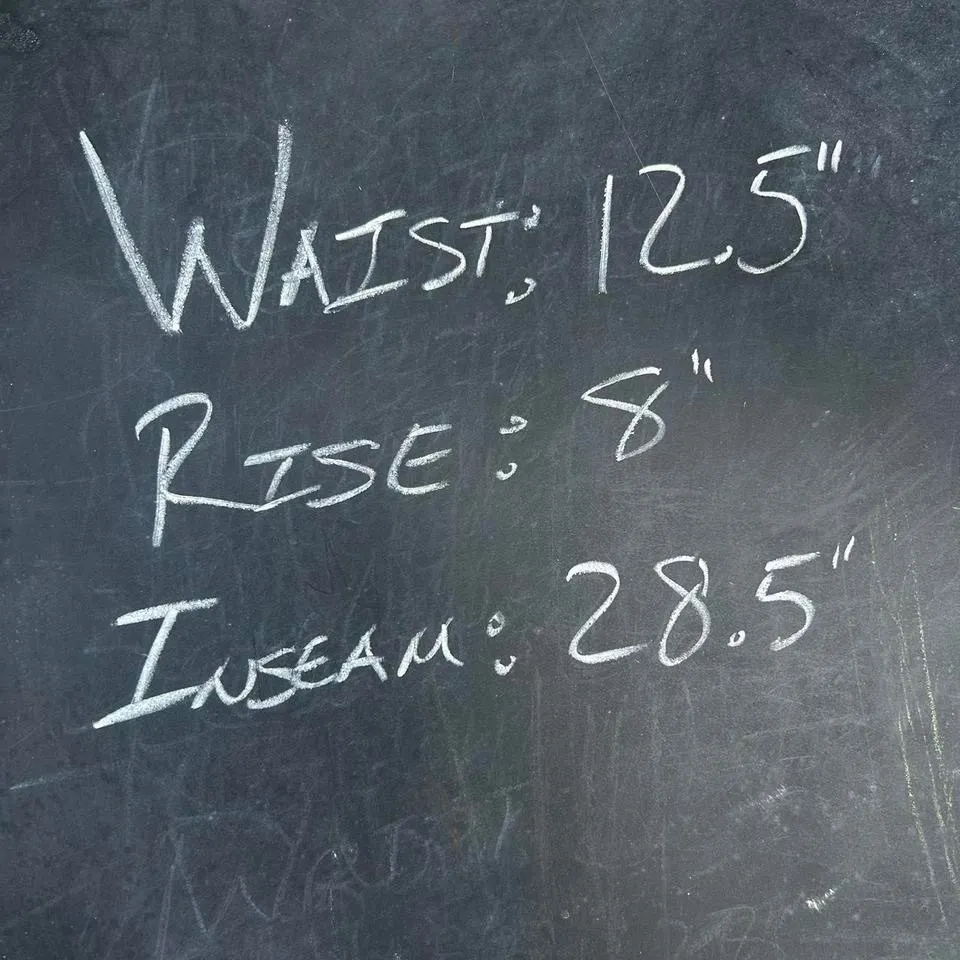 WAIST: 12.5"
RISE: 8"
INSEAM: 28.5"